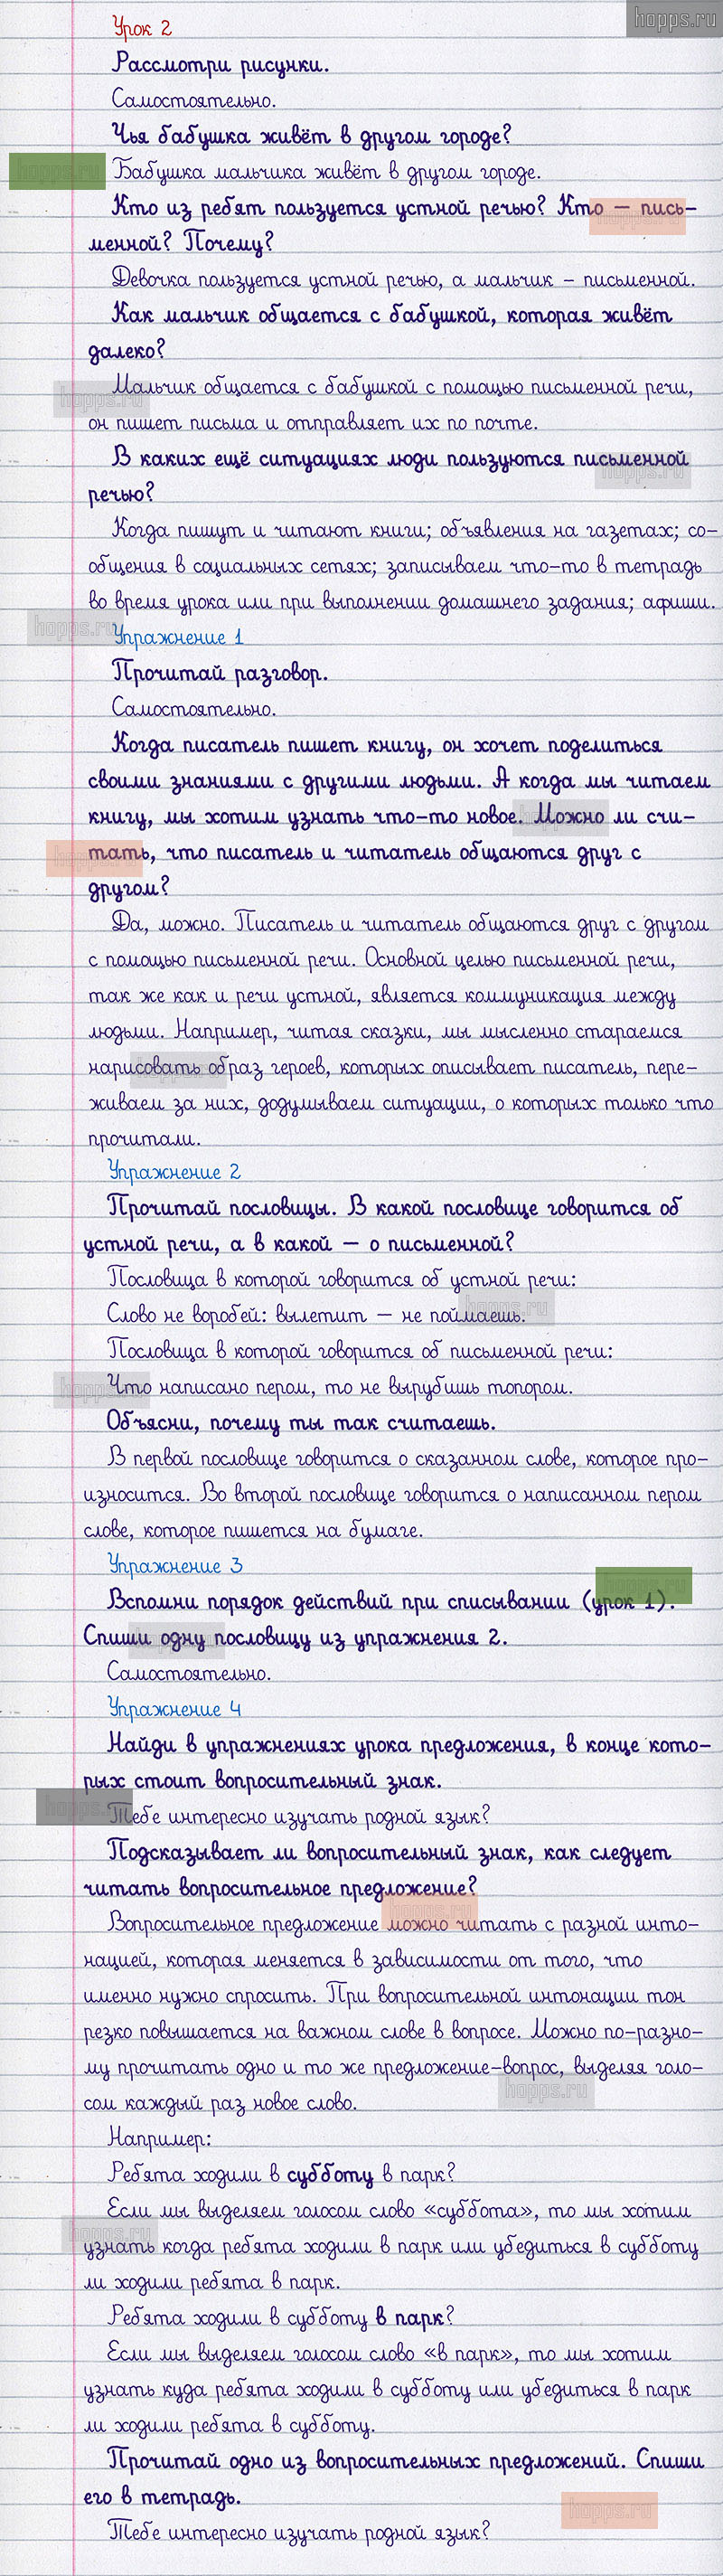 hopps.ru
Урок 2
Рассмотри рисунки.
Самостоятельно.
Чья бабушка живёт в другом городе?
Бабушка мальчика живёт в другом городе.
Кто из ребят пользуется устной речью? Кто — пись-
менной? Почему?
Девочка пользуется устной речью, а мальчик – письменной.
Как мальчик общается с бабушкой, которая живёт
далеко?
Мальчик общается с бабушкой с помощью письменной речи,
он пишет письма и отправляет их по почте.
В каких ещё ситуациях люди пользуются письменной
речью?
Когда пишут и читают книги; объявления на газетах; со-
общения в социальных сетях; записываем что-то в тетрадь
во время урока или при выполнении домашнего задания; афиши.
Упражнение 1
Прочитай разговор.
Самостоятельно.
Когда писатель пишет книгу, он хочет поделиться
своими знаниями с другими людьми. А когда мы читаем
книгу, мы хотим узнать что-то новое. Можно ли счи-
тать, что писатель и читатель общаются друг с
другом?
Да, можно. Писатель и читатель общаются друг с другом
с помощью письменной речи. Основной целью письменной речи,
так же как и речи устной, является коммуникация между
людьми. Например, читая сказки, мы мысленно стараемся
нарисовать образ героев, которых описывает писатель, пере-
живаем за них, додумываем ситуации, о которых только что
прочитали.
Упражнение 2
Прочитай пословицы. В какой пословице говорится об
устной речи, а в какой — о письменной?
Пословица в которой говорится об устной речи:
Слово не воробей: вылетит — не поймаешь.
Пословица в которой говорится об письменной речи:
Что написано пером, то не вырубишь топором.
Объясни, почему ты так считаешь.
В первой пословице говорится о сказанном слове, которое про-
износится. Во второй пословице говорится о написанном пером
слове, которое пишется на бумаге.
Упражнение 3
Вспомни порядок действий при списывании (урок 1).
Спиши одну пословицу из упражнения 2.
Самостоятельно.
Упражнение 4
Найди в упражнениях урока предложения, в конце кото-
рых стоит вопросительный знак.
Тебе интересно изучать родной язык?
Подсказывает ли вопросительный знак, как следует
читать вопросительное предложение?
Вопросительное предложение можно читать с разной инто-
нацией, которая меняется в зависимости от того, что
именно нужно спросить. При вопросительной интонации тон
резко повышается на важном слове в вопросе. Можно по-разно-
му прочитать одно и то же предложение-вопрос, выделяя голо-
сом каждый раз новое слово.
Например:
Ребята ходили в субботу в парк?
Если мы выделяем голосом слово «суббота», то мы хотим
узнать когда ребята ходили в парк или убедиться в субботу
ли ходили ребята в парк.
Ребята ходили в субботу в парк?
Если мы выделяем голосом слово «в парк», то мы хотим
узнать куда ребята ходили в субботу или убедиться в парк
ли ходили ребята в субботу.
Прочитай одно из вопросительных предложений. Спиши
его в тетрадь.
Тебе интересно изучать родной язык?